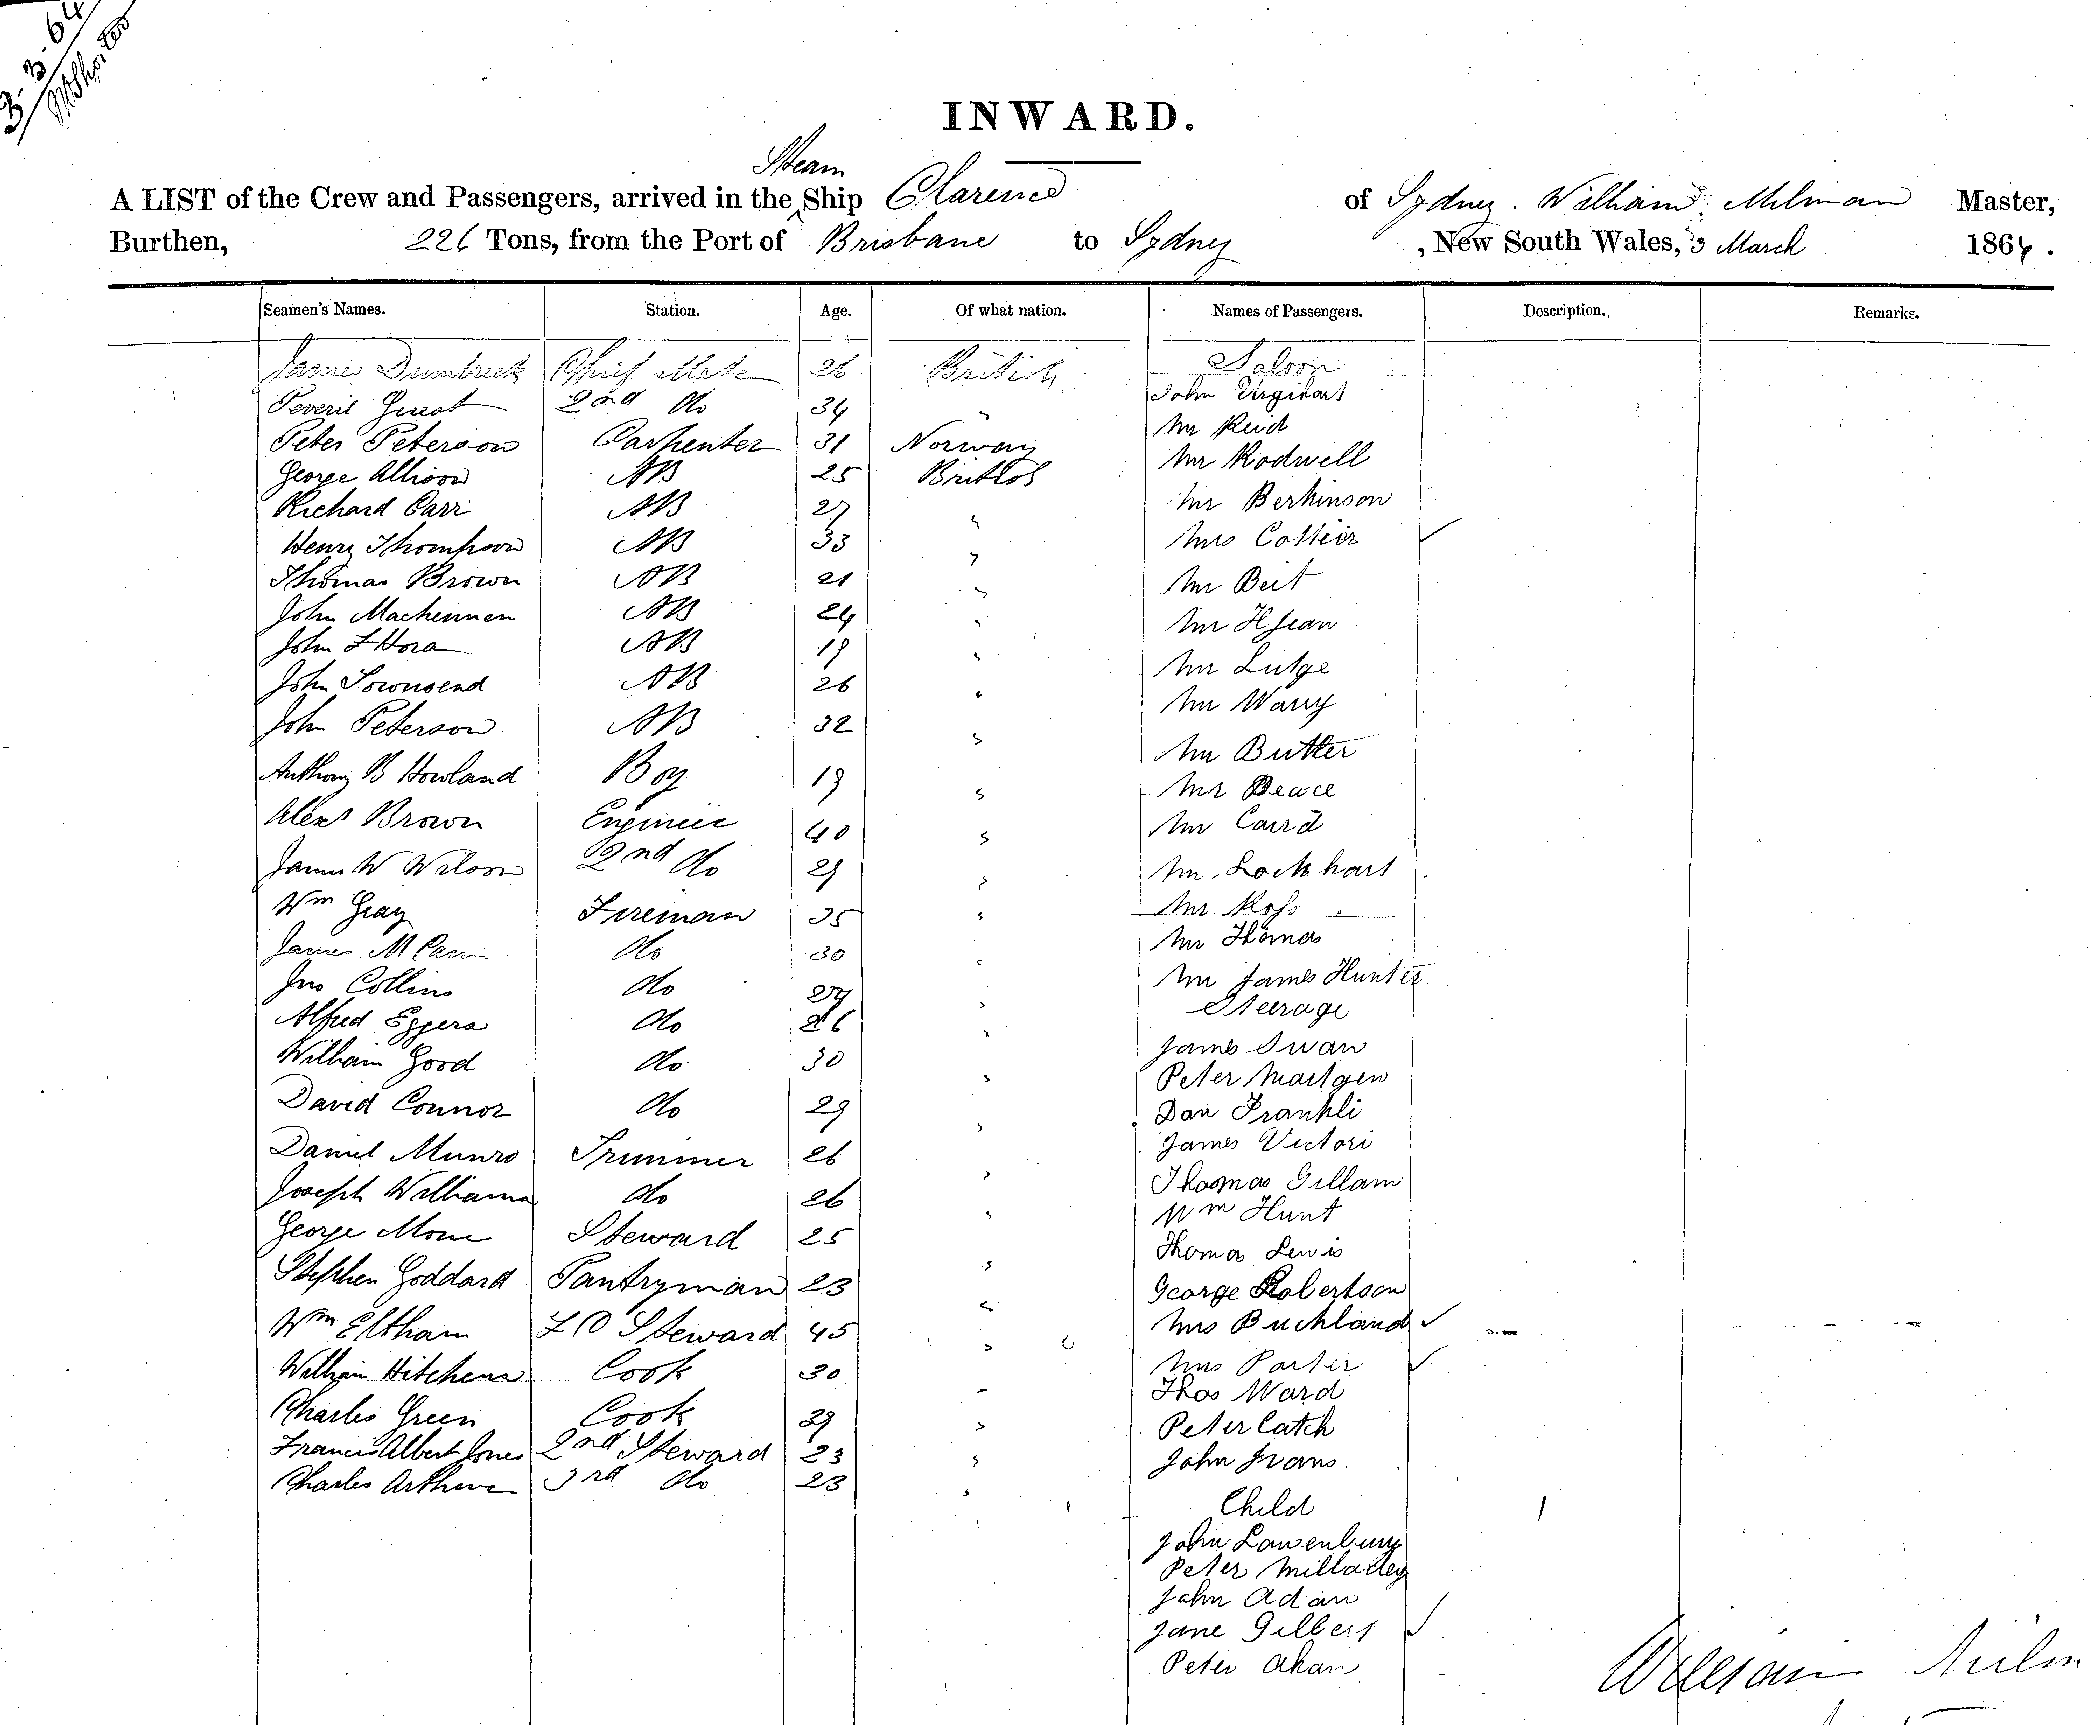 3.3.64
INWARD.
Steam
A LIST of the Crew and Passengers, arrived in the Ship Clarence of Sydney. William Milman Master,
Burthen, 226 Tons, from the Port of Brisbane to Sydney, New South Wales, 3 March 1864.
Seamen's Names. Station. Age. Of what nation. Names of Passengers. Description. Remarks.
James Dumbreck Chief Mate 26 British Saloon
Peveril Guest 2nd do 34 " John Urquhart
Peter Peterson Carpenter 31 Norway Mr Reid
George Allison AB 25 British Mr Rodwell
Richard Carr AB 27 " Mr Berkinson
Henry Thompson AB 33 " Mrs Collier
Thomas Brown AB 21 " Mr Beit
John Mackinnen AB 24 " Mr
John AB 19 " Mr Lutge
John Townsend AB 26 " Mr Warry
John Peterson AB 32 " Mr Butler
Anthony B Howland Boy 19 " Mr Beace
Alexr Brown Engineer 40 " Mr Caird
James W Wilson 2nd do 29 " Mr Lockhart
Wm Gray Fireman 35 " Mr Ross
James McCann do 30 " Mr Thomas
Jno Collins do 27 " Mr James Hunter
Alfred Eggers do 26 " Steerage
William Good do 30 " James Swan
Peter Martgen
David Connor do 29 " Dan Frankli
James Victori
Daniel Munro Trimmer 26 " Thomas Gillam
Joseph Williams do 26 " Wm Hunt
George Steward 25 " Thomas Lewis
Stephen Goddard Pantryman 23 " George Robertson
Wm Eltham Steward 45 " Mrs Buckland
William Hitchens Cook 30 " Mrs Porter
Thos Ward
Charles Green Cook 29 " Peter Catch
Francis Albert Jones 2nd Steward 23 " John Ivans
Charles Arthur 3rd do 23 "
Child 1
John Lowenburg
Peter Milladey
John Adan
Jane Gilbert
Peter Akan
William Milm